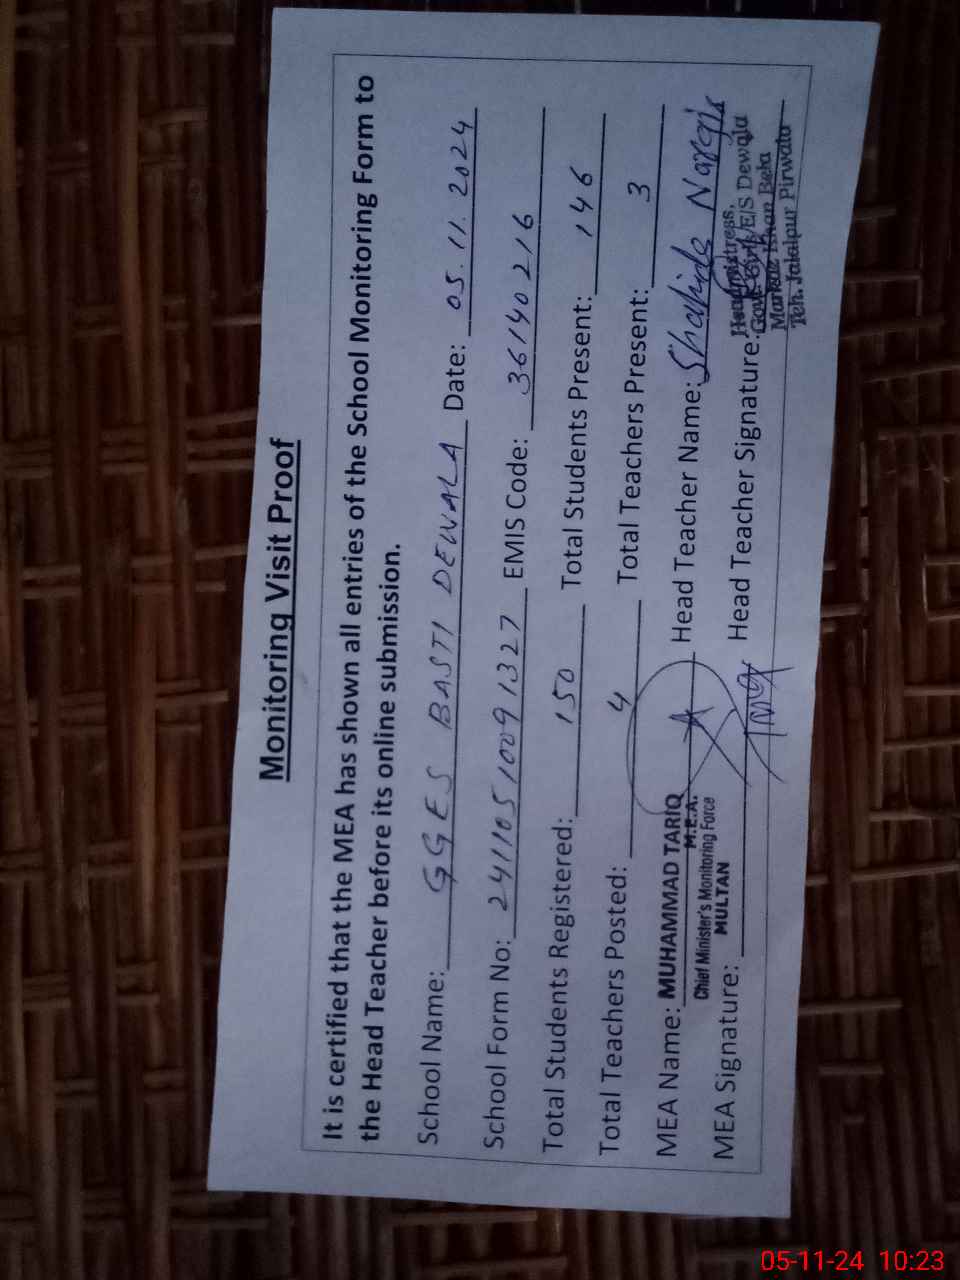 Monitoring Visit Proof
It is certified that the MEA has shown all entries of the School Monitoring Form to
the Head Teacher before its online submission.
School Name: GGES BASTI DEWALA Date: 05.11.2024
School Form No: 241110510091327 EMIS Code: 36140216
Total Students Registered: 150 Total Students Present: 146
Total Teachers Posted: 4 Total Teachers Present: 3
MEA Name: MUHAMMAD TARIQ Head Teacher Name: Shahida Nargis
M.E.A.
Chief Minister's Monitoring Force
MULTAN
MEA Signature: Head Teacher Signature:
Headmistress,
Govt. Girls E/S Dewala
Markaz Khan Bela
Teh. Jalalpur Pirwala
05-11-24 10:23